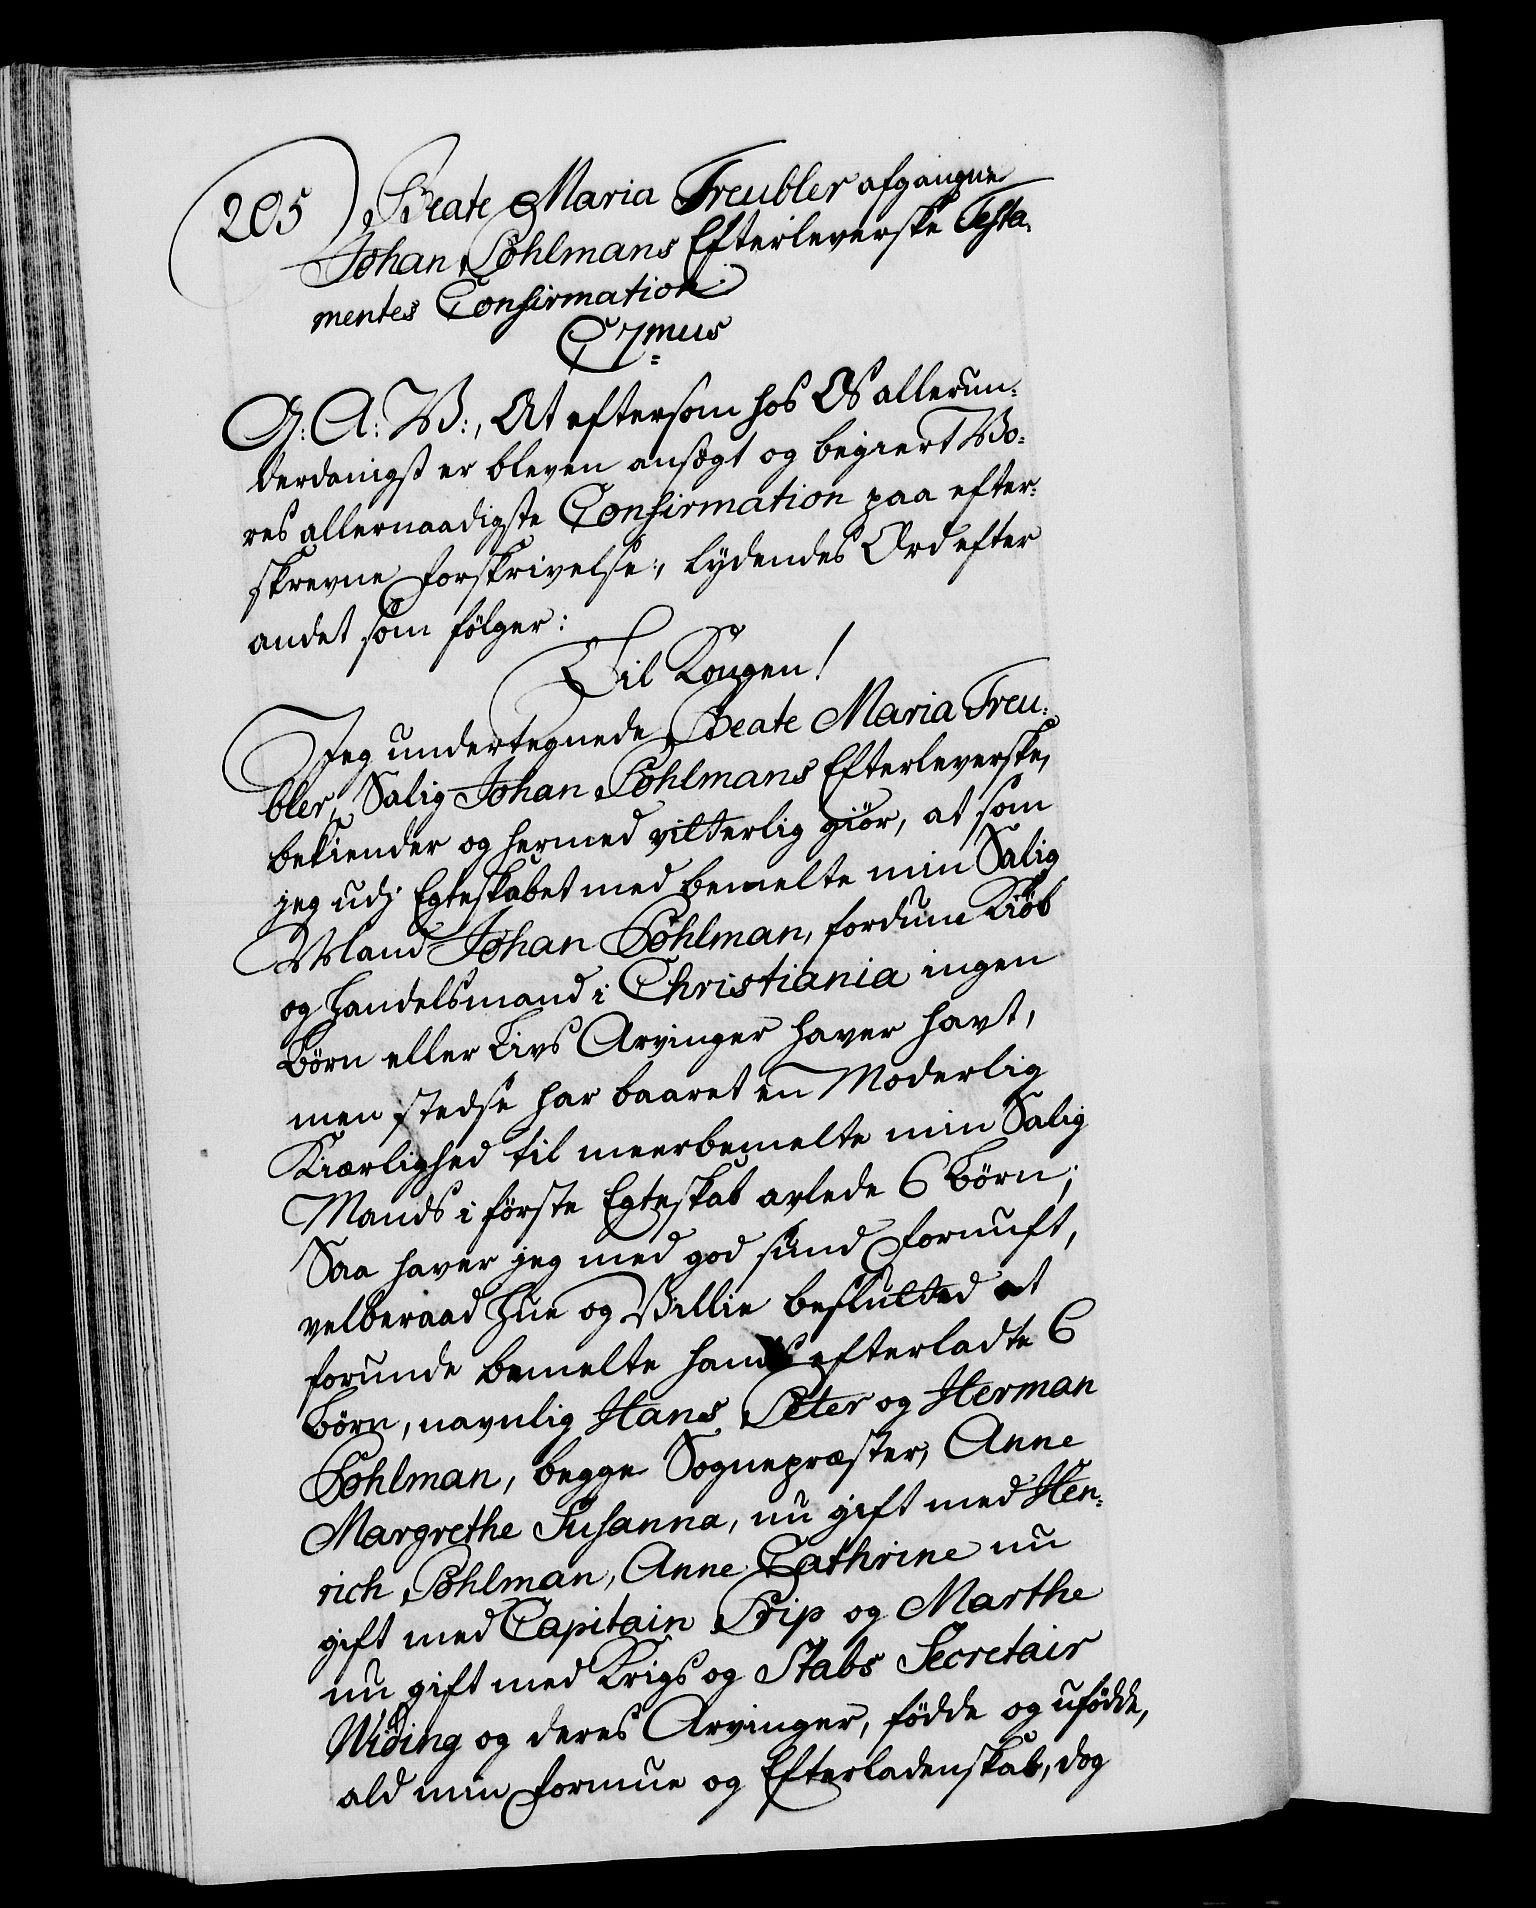 205) Beate Maria Treubler afgangne
Johan Pohlmans Efterleverske Testa-
mentes Confirmation
C 7mus
G: A: V:, At eftersom hos Os allerun-
derdanigst er bleven ansøgt og begiert Vo-
res allernaadigste Confirmation paa efter-
skrevne Forskrivelse, lydendes Ord efter
andet som følger:
Til Kongen!
Jeg undertegnede Beate Maria Treu-
bler, Salig Johan Pohlmans Efterleverske,
bekiender og hermed vitterlig giör, at som
jeg udj Egteskabet med bemelte min Salig
Mand Johan Pohlman, fordum Kiöb
og Handelsmand i Christiania ingen
Börn eller Livs Arvinger haver havt,
men stedse har baaret en Moderlig
Kiærlighed til meerbemelte min Salig
Mands i förste Egteskab avlede 6 Börn;
Saa haver jeg med god sund Fornuft,
velberaad Hue og Villie beslutted at
forunde bemelte hans efterladte 6
Börn, navnlig Hans, Peter og Herman
Pohlman, begge Sognepræster, Anne
Margrethe Susanna, nu gift med Hen-
rich Pohlman, Anne Cathrine nu
gift med Capitain Prip og Marthe
nu gift med Krigs og Stabs Secretair
Widing og deres Arvinger, födde og ufödde,
ald min Formue og Efterladenskab, dog